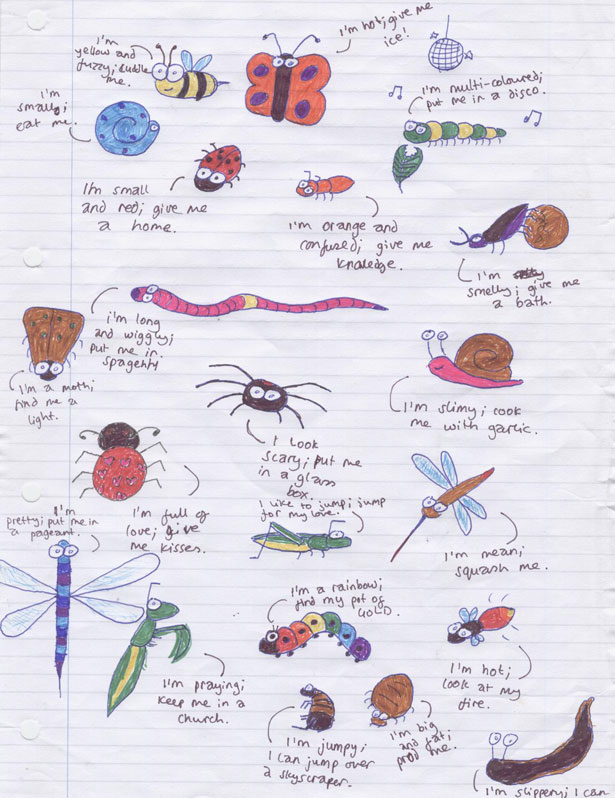 I'm
yellow and
fuzzy; cuddle
me.
I'm hot; give me
ice!
I'm
small;
eat me.
I'm multi-coloured;
put me in a disco.
I'm small
and red; give me
a home.
I'm orange and
confused; give me
knowledge.
I'm
smelly; give me
a bath.
i'm long
and wiggly;
put me in
spagehty
I'm a moth;
find me a
light.
I look
scary; put me
in a glass
box.
I'm slimy; cook
me with garlic.
I'm full of
love; give
me kisses.
I like to jump; jump
for my love.
I'm mean;
squash me.
I'm
pretty; put me in
a pageant.
I'm praying;
keep me in a
church.
I'm a rainbow;
find my pot of
GOLD.
I'm hot;
look at my
fire.
I'm jumpy;
I can jump over
a skyscraper.
I'm big
and fat;
prod me.
I'm slippery; I can